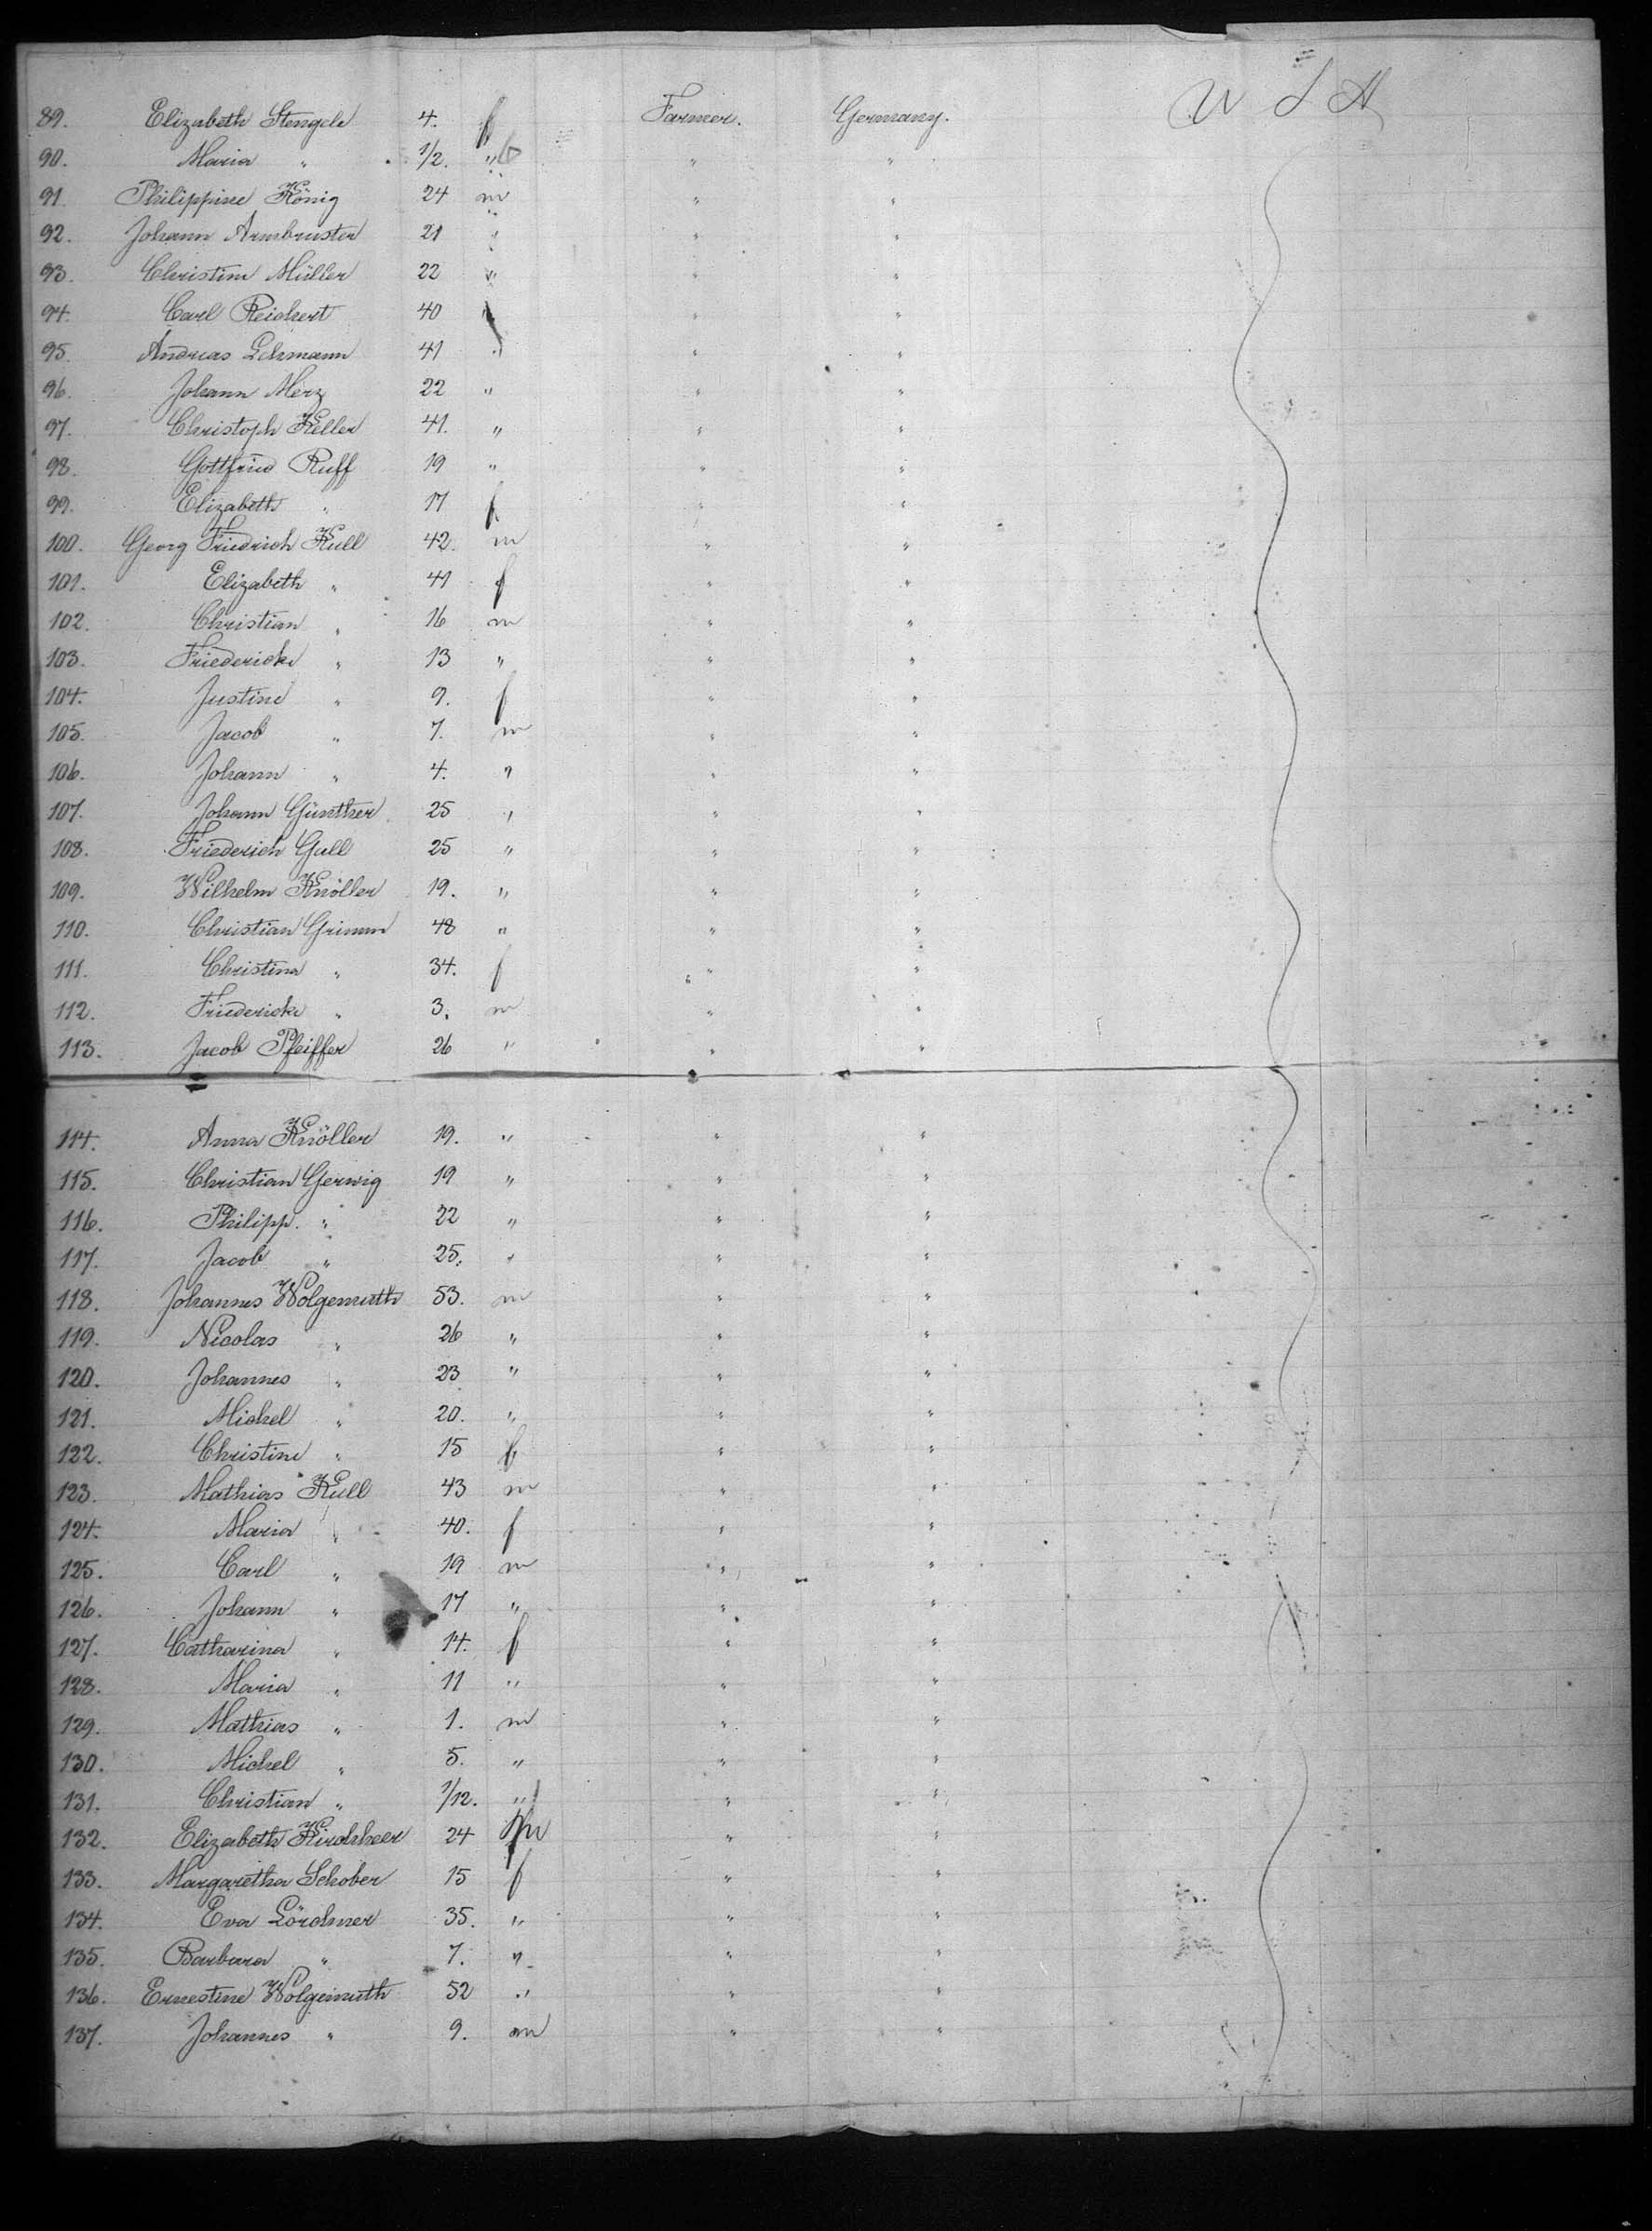 89. Elizabeth Stengele 4. f Farmer. Germany. U S A
90. Maria " 1/2. " " "
91. Philippine König 24 m " "
92. Johann Armbruster 21 " " "
93. Christine Müller 22 " " "
94. Carl Reichert 40 " " "
95. Andreas Lehmann 41 " " "
96. Johann Merz 22 " " "
97. Christoph Keller 41. " " "
98. Gottfried Ruff 19 " " "
99. Elizabeth " 17 f " "
100. Georg Friedrich Kull 42. m " "
101. Elizabeth " 41 f " "
102. Christian " 16 m " "
103. Friedericke " 13 " " "
104. Justine " 9. f " "
105. Jacob " 7. m " "
106. Johann " 4. " " "
107. Johann Günther 25 " " "
108. Friederich Gall 25 " " "
109. Wilhelm Knöller 19. " " "
110. Christian Grimm 48 " " "
111. Christina " 34. f " "
112. Friedericke " 3. m " "
113. Jacob Pfeiffer 26 " " "
114. Anna Knöller 19. " " "
115. Christian Gerwig 19 " " "
116. Philipp. " 22 " " "
117. Jacob " 25. " " "
118. Johannes Wolgemuth 53. m " "
119. Nicolas " 26 " " "
120. Johannes " 23 " " "
121. Michel " 20. " " "
122. Christine " 15 f " "
123. Mathias Kull 43 m " "
124. Maria " 40. f " "
125. Carl " 19 m " "
126. Johann " 17 " " "
127. Catharina " 14. f " "
128. Maria " 11 " " "
129. Mathias " 1. m " "
130. Michel " 5. " " "
131. Christian " 1/12. " " "
132. Elizabeth Kirchherr 24 " "
133. Margaretha Schober 15 f " "
134. Eva Lörchner 35. " " "
135. Barbara " 7. " " "
136. Ernestine Wolgemuth 52 " " "
137. Johannes " 9. m " "